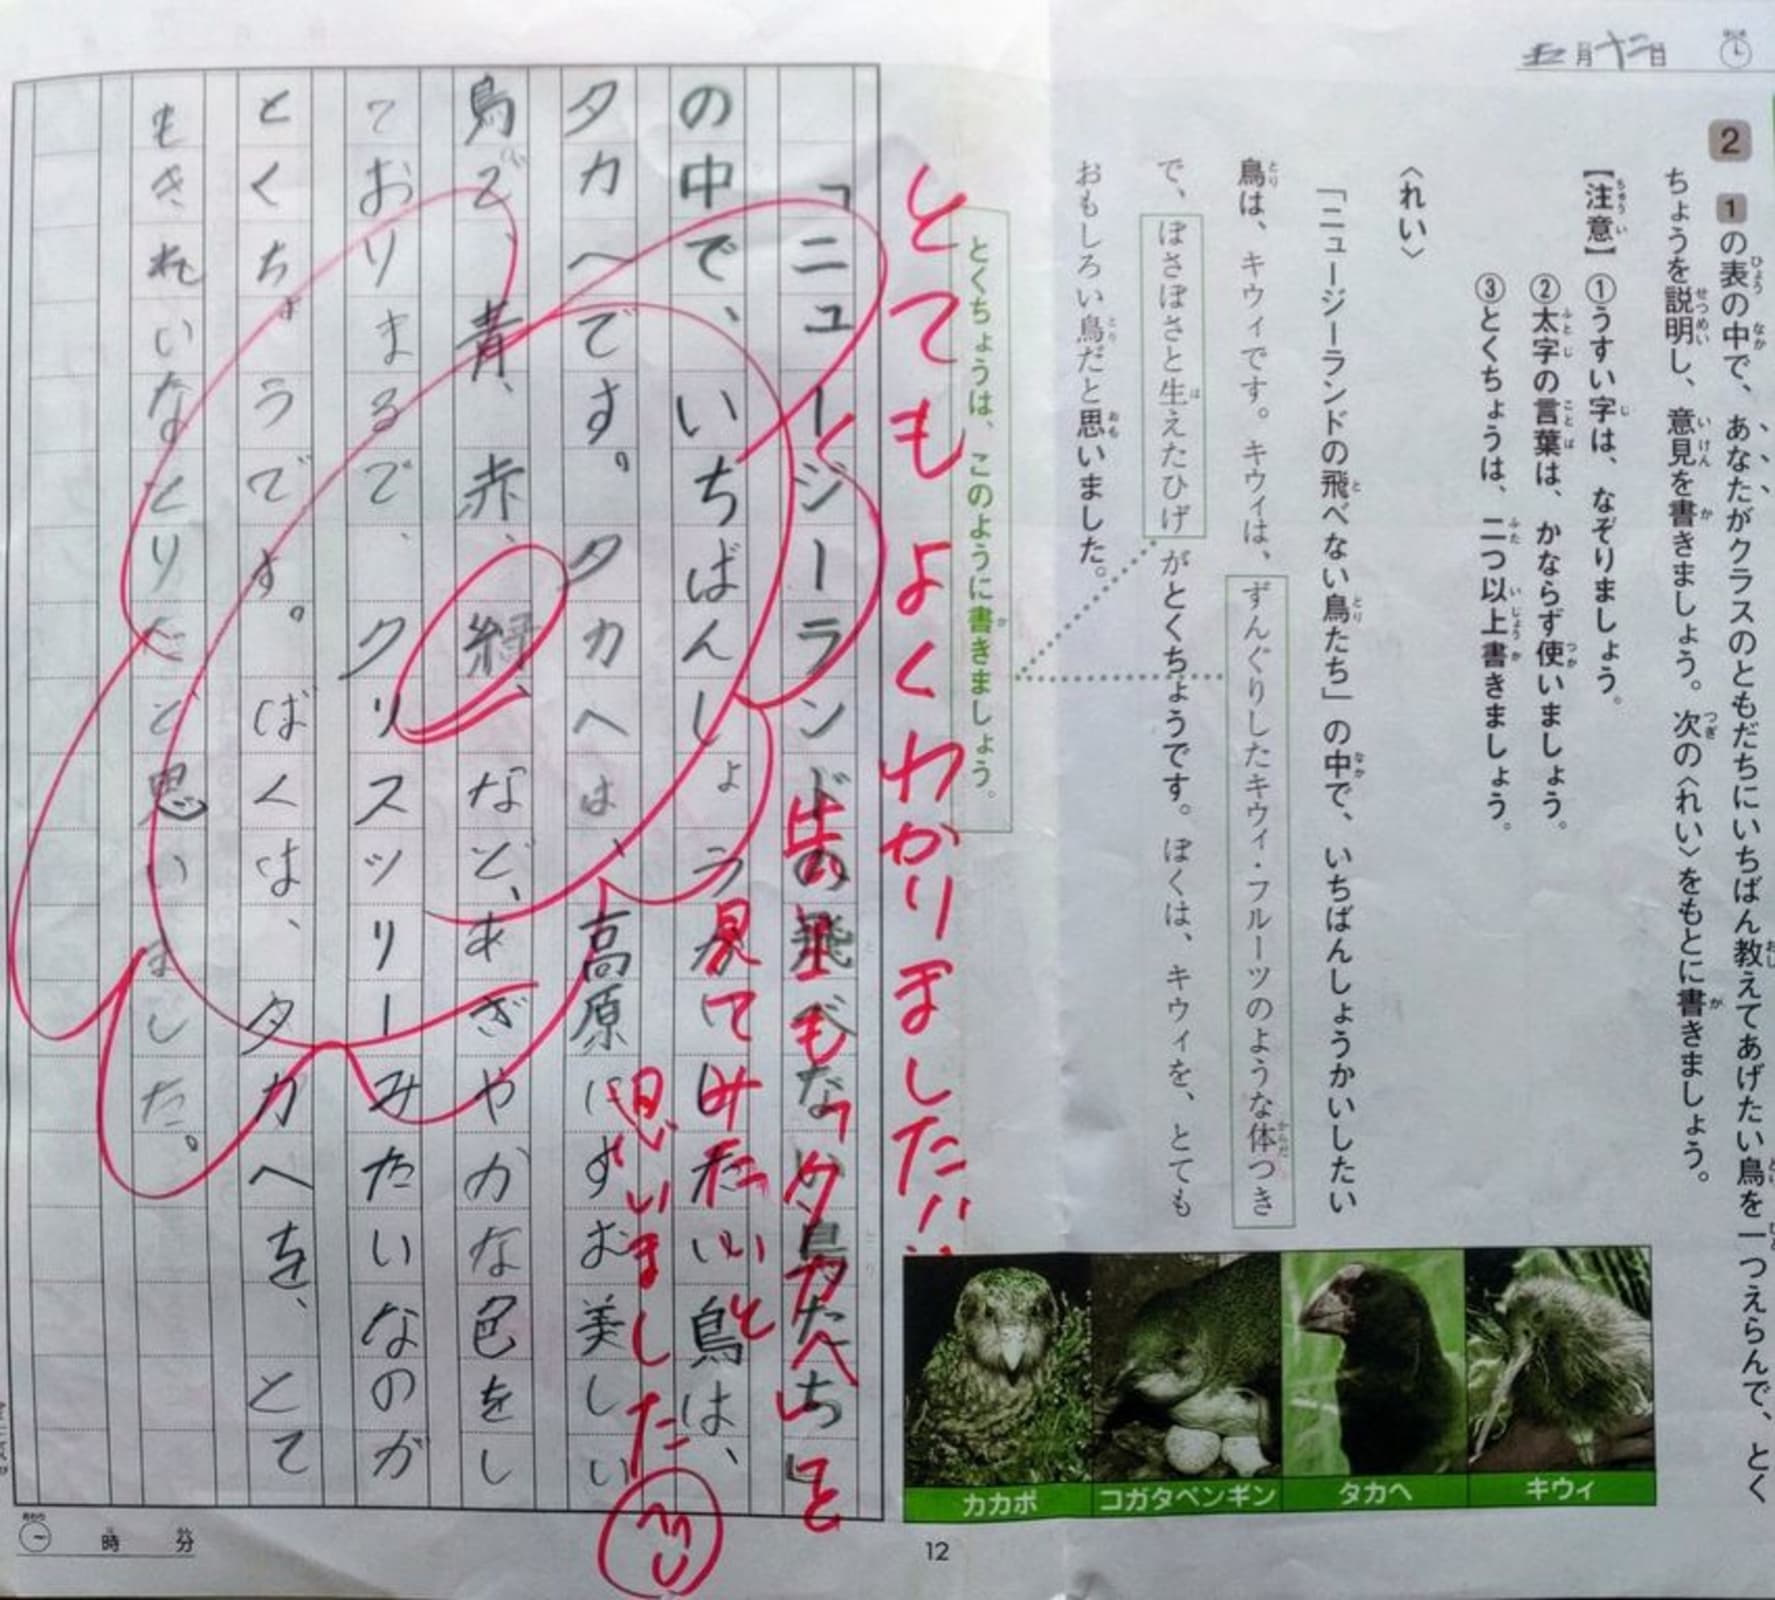 五月十二日
2
1の表の中で、あなたがクラスのともだちにいちばん教えてあげたい鳥を一つえらんで、とく
ちょうを説明し、意見を書きましょう。次の〈れい〉をもとに書きましょう。
【注意】①うすい字は、なぞりましょう。
②太字の言葉は、かならず使いましょう。
③とくちょうは、二つ以上書きましょう。
〈れい〉
「ニュージーランドの飛べない鳥たち」の中で、いちばんしょうかいしたい
鳥は、キウィです。キウィは、ずんぐりしたキウィ・フルーツのような体つき
で、ぼさぼさと生えたひげがとくちょうです。ぼくは、キウィを、とても
おもしろい鳥だと思いました。
とくちょうは、このように書きましょう。
キウィ
タカヘ
コガタペンギン
カカポ
とてもよくわかりました!!
「ニュージーランドの飛べない鳥たち」
の中で、いちばんしょうかいしたい鳥は、
タカヘです。タカヘは、高原にすむ美しい
鳥で、青、赤、緑、など、あざやかな色をし
ておりまるで、クリスツリーみたいなのが
とくちょうです。ぼくは、タカヘを、とて
もきれいなとりだと思いました。
先生も「タカヘ」を
見てみたいと
思いました
12
時 分